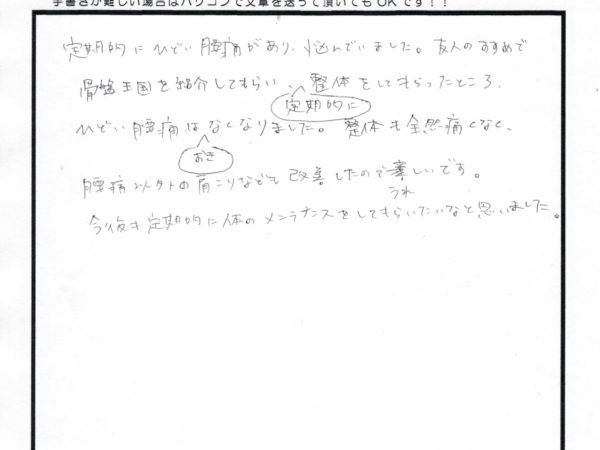 手書きが難しい場合はパソコンで文章を送って頂いてもOKです！！
定期的にひどい腰痛があり、悩んでいました。友人のすすめで
骨盤王国を紹介してもらい、整体をしてもらったところ、
定期的に
ひどい腰痛はなくなりました。整体も全然痛くなく、
おき
腰痛以外の肩こりなども改善したので嬉しいです。
うれ
今後も定期的に体のメンテナンスをしてもらいたいなと思いました。